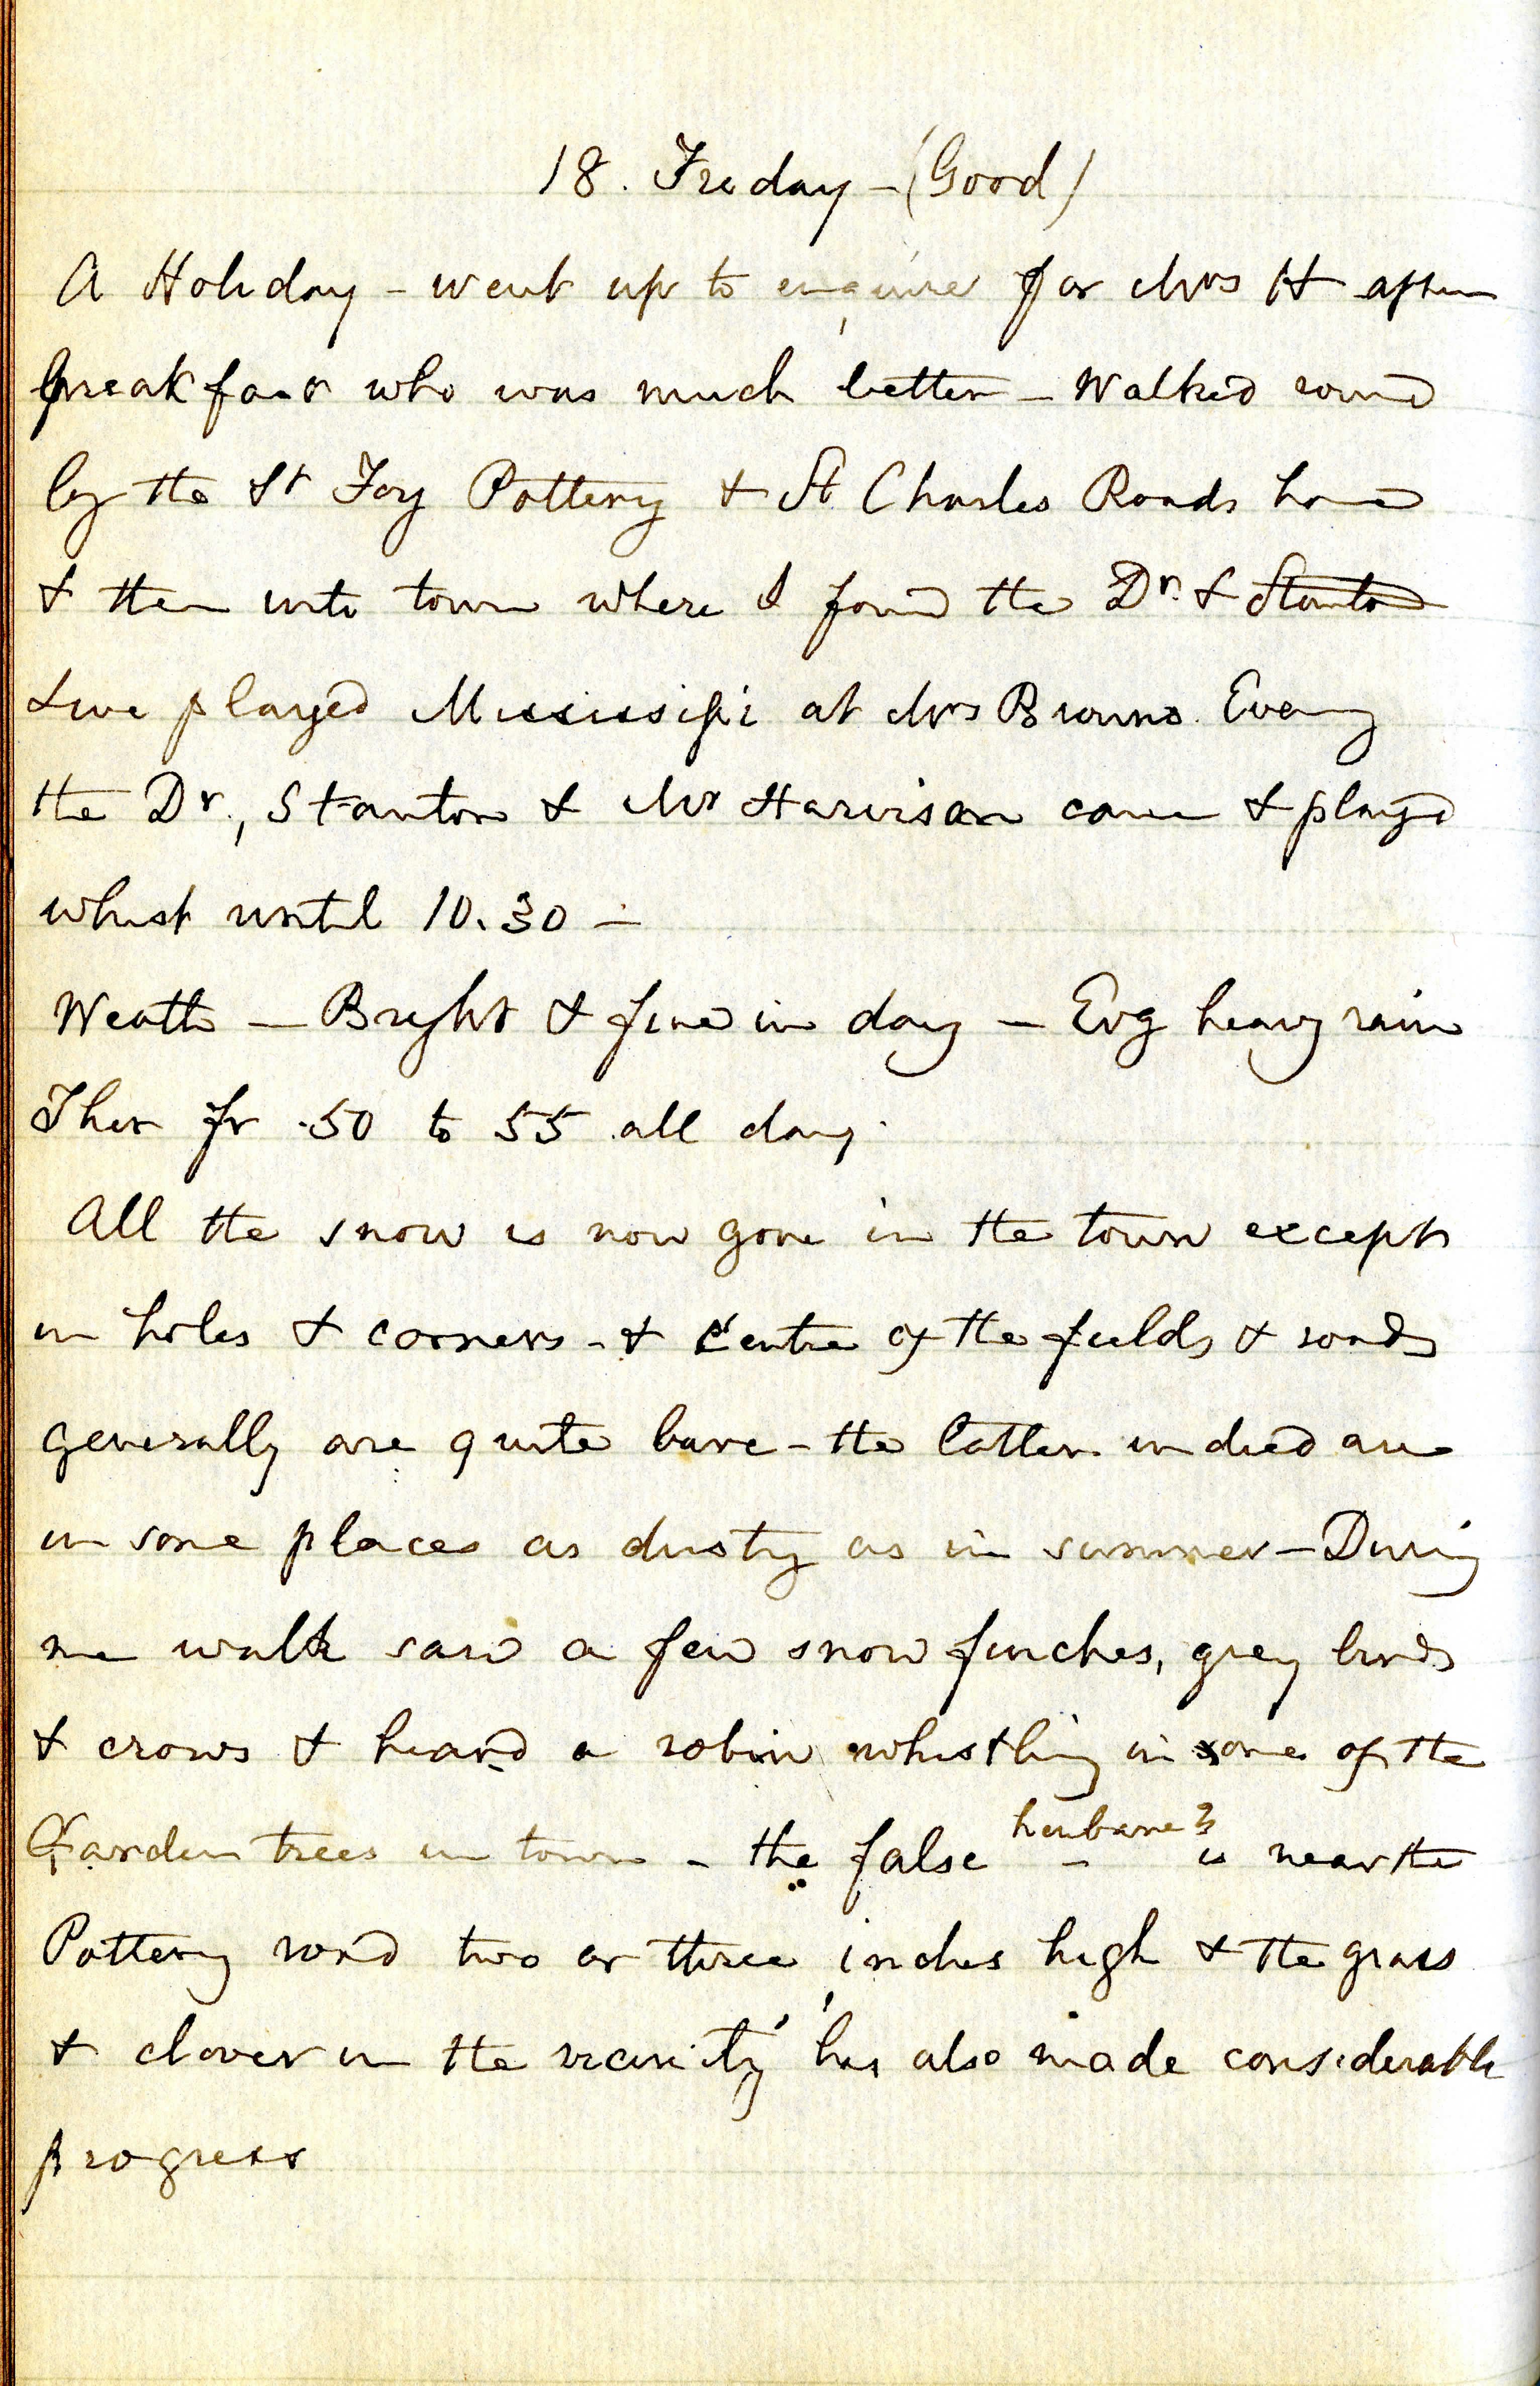 18. Friday - (Good)
A Holiday - went up to enquire for Mrs H after
breakfast who was much better - Walked round
by the St Foy Pottery & St Charles Roads home
& then into town where I found the Dr. & ~~Stanton~~
& we played Mississipi at Mrs Browns. Evening
the Dr., Stanton & Mr Harrison came & played
whist until 10.30 -
Weath - Bright & fine in day - Evg heavy rain
Ther fr 50 to 55 all day.
All the snow is now gone in the town except
in holes & corners - & centre of the fields & roads
generally are quite bare - the latter indeed are
in some places as dusty as in summer - During
me walk saw a few snow finches, grey birds
& crows & heard a robin whistling in some of the
Garden trees in town - the false henbane? is near the
Pottery road two or three inches high & the grass
& clover in the vicinity has also made considerable
progress